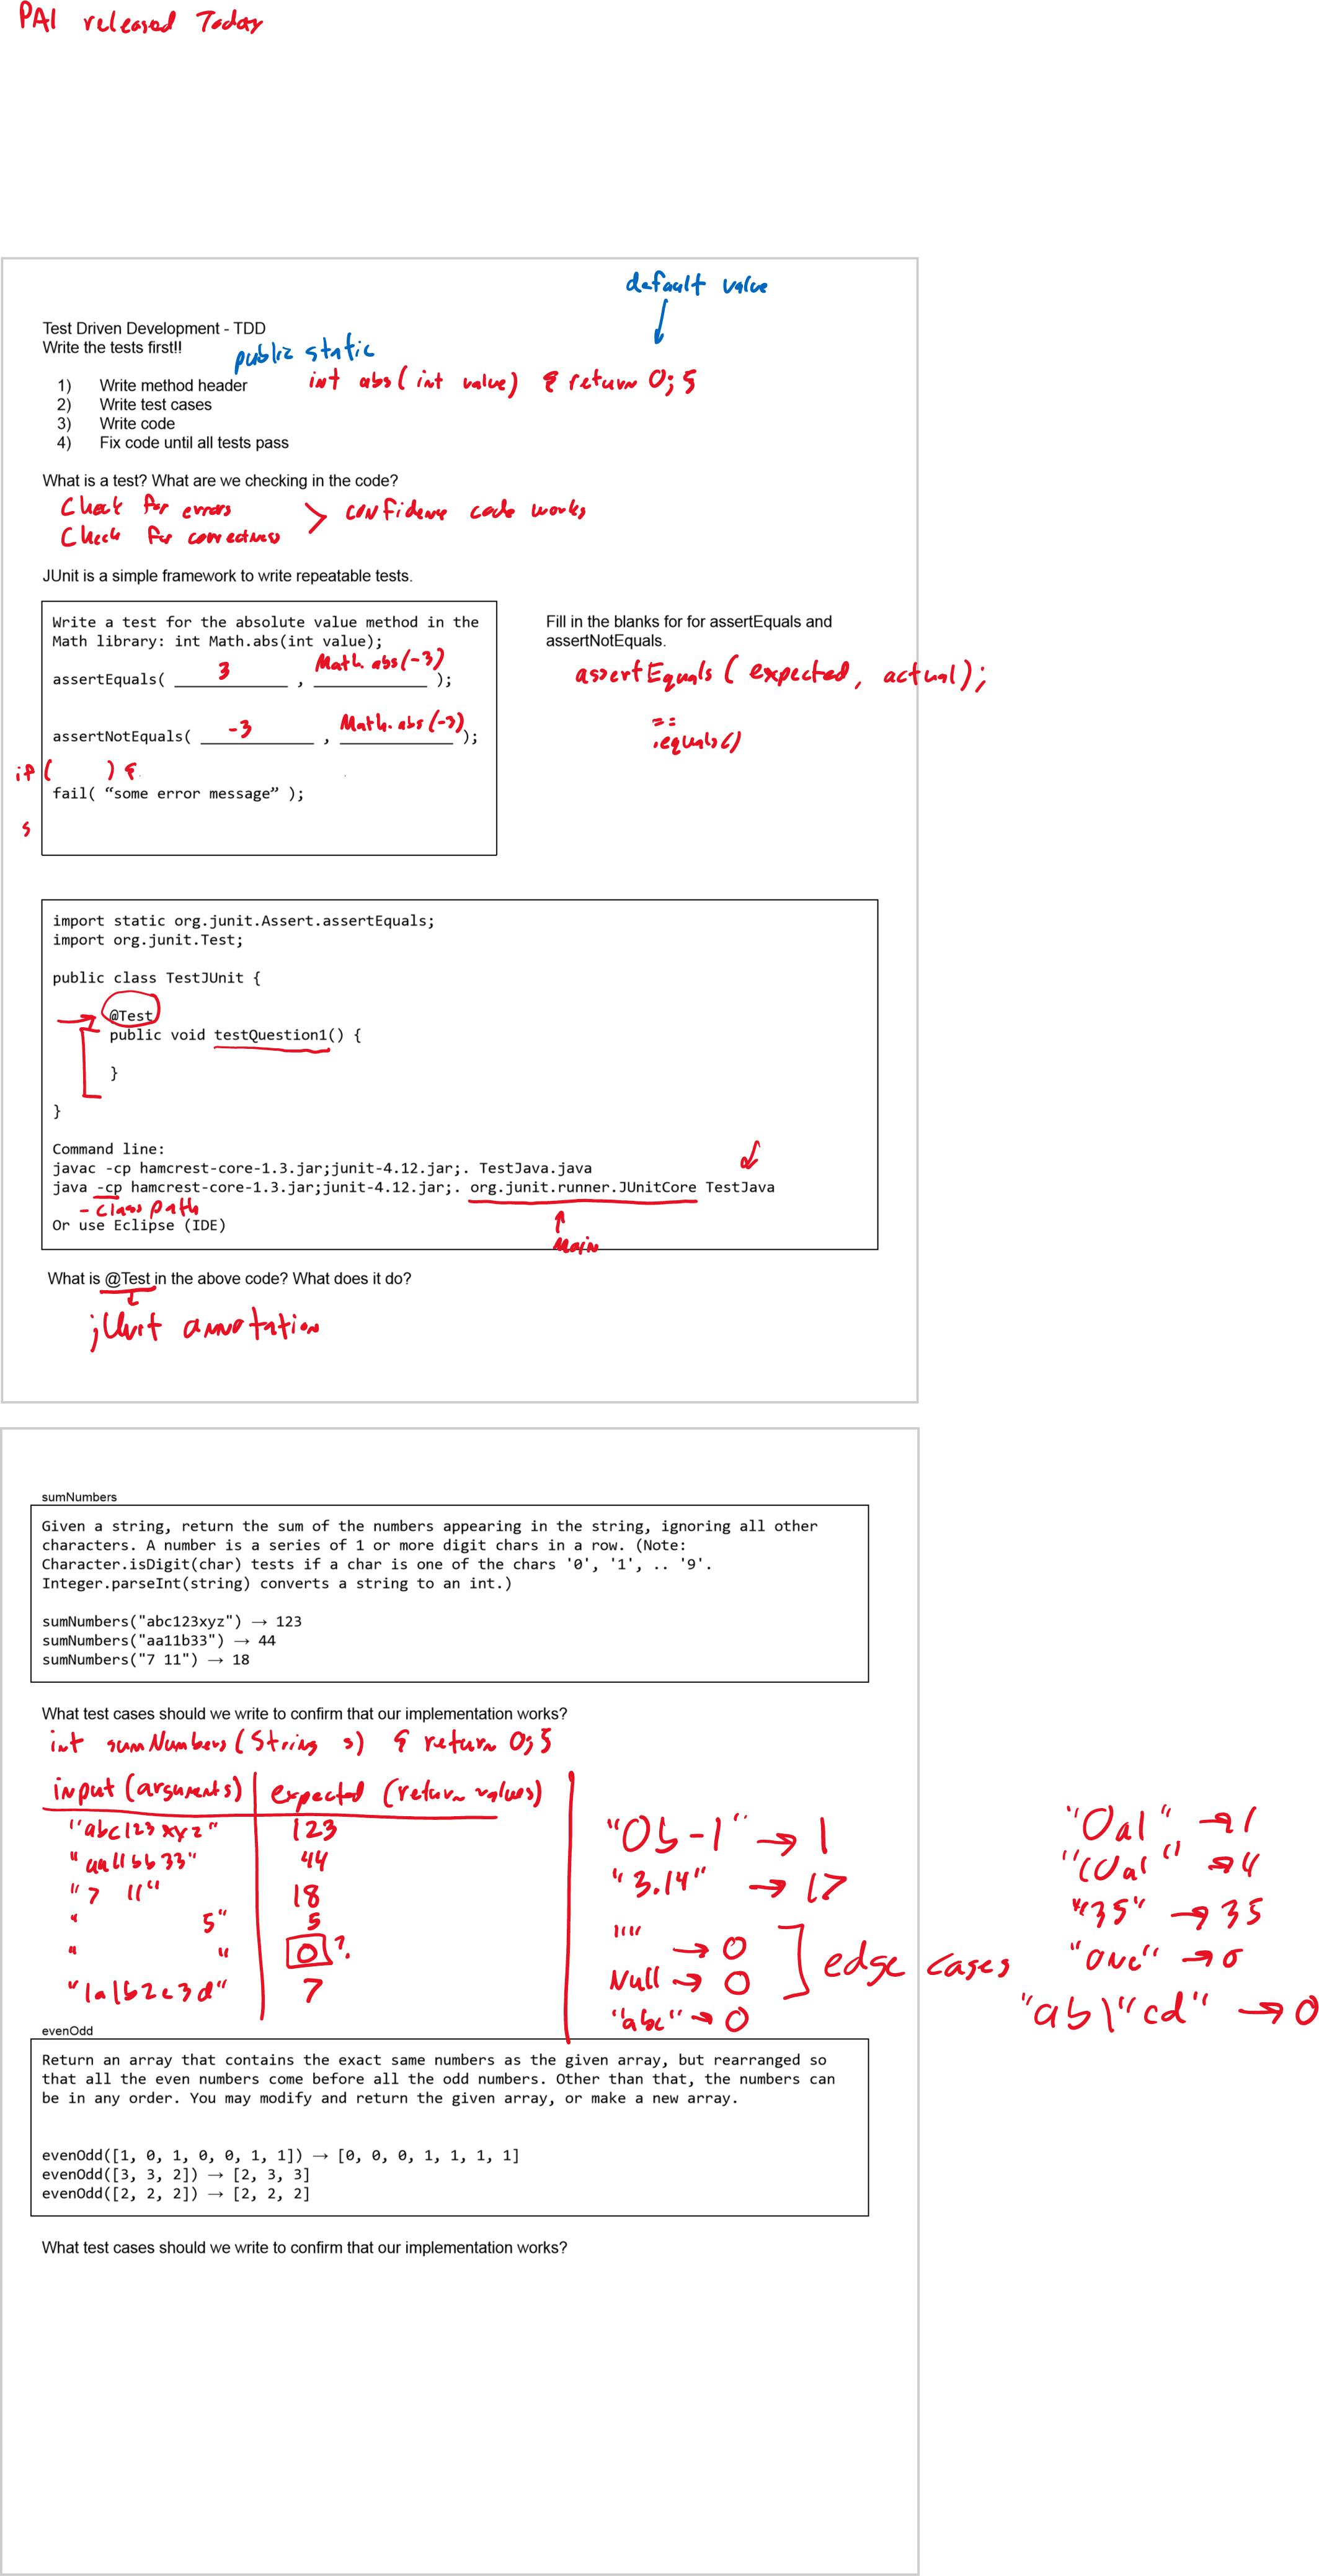 PA1 released Today
default value
Test Driven Development - TDD
Write the tests first!!
public static
1) Write method header
int abs(int value) { return 0; }
2) Write test cases
3) Write code
4) Fix code until all tests pass
What is a test? What are we checking in the code?
Check for errors
Check for correctness
> confidence code works
JUnit is a simple framework to write repeatable tests.
Write a test for the absolute value method in the
Math library: int Math.abs(int value);
assertEquals( 3 , Math.abs(-3) );
assertNotEquals( -3 , Math.abs(-3) );
if ( ) {
fail( “some error message” );
}
Fill in the blanks for for assertEquals and
assertNotEquals.
assertEquals ( expected, actual);
==
.equals()
import static org.junit.Assert.assertEquals;
import org.junit.Test;
public class TestJUnit {
@Test
public void testQuestion1() {
}
}
Command line:
javac -cp hamcrest-core-1.3.jar;junit-4.12.jar;. TestJava.java
java -cp hamcrest-core-1.3.jar;junit-4.12.jar;. org.junit.runner.JUnitCore TestJava
- class path
Or use Eclipse (IDE)
Main
What is @Test in the above code? What does it do?
jUnit annotation
sumNumbers
Given a string, return the sum of the numbers appearing in the string, ignoring all other
characters. A number is a series of 1 or more digit chars in a row. (Note:
Character.isDigit(char) tests if a char is one of the chars '0', '1', .. '9'.
Integer.parseInt(string) converts a string to an int.)
sumNumbers("abc123xyz") → 123
sumNumbers("aa11b33") → 44
sumNumbers("7 11") → 18
What test cases should we write to confirm that our implementation works?
int sumNumbers(String s) { return 0; }
input (arguments) expected (return values)
"abc123xyz" 123
"aa11bb33" 44
"7 11" 18
" 5" 5
" " 0 ?
"1a1b2c3d" 7
"0b-1" → 1
"3.14" → 17
"" → 0
Null → 0
"abc" → 0
edge cases
"0a1" → 1
"35" → 35
"one" → 0
"ab\"cd" → 0
evenOdd
Return an array that contains the exact same numbers as the given array, but rearranged so
that all the even numbers come before all the odd numbers. Other than that, the numbers can
be in any order. You may modify and return the given array, or make a new array.
evenOdd([1, 0, 1, 0, 0, 1, 1]) → [0, 0, 0, 1, 1, 1, 1]
evenOdd([3, 3, 2]) → [2, 3, 3]
evenOdd([2, 2, 2]) → [2, 2, 2]
What test cases should we write to confirm that our implementation works?